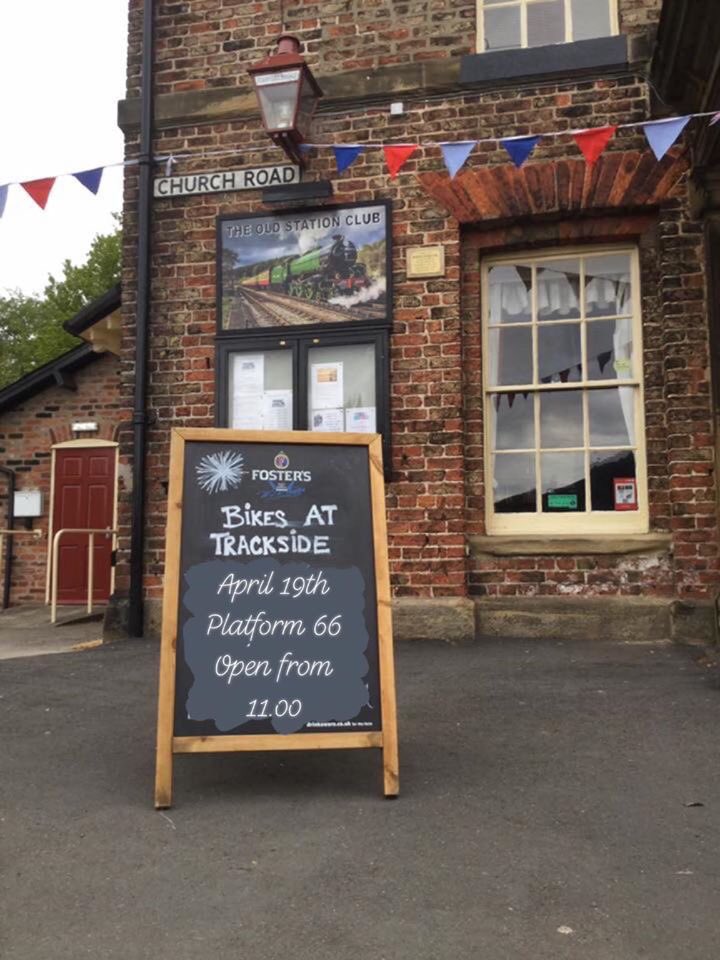 CHURCH ROAD
THE OLD STATION CLUB
FOSTER'S
BIKES AT
TRACKSIDE
April 19th
Platform 66
Open from
11.00
drinkaware.co.uk